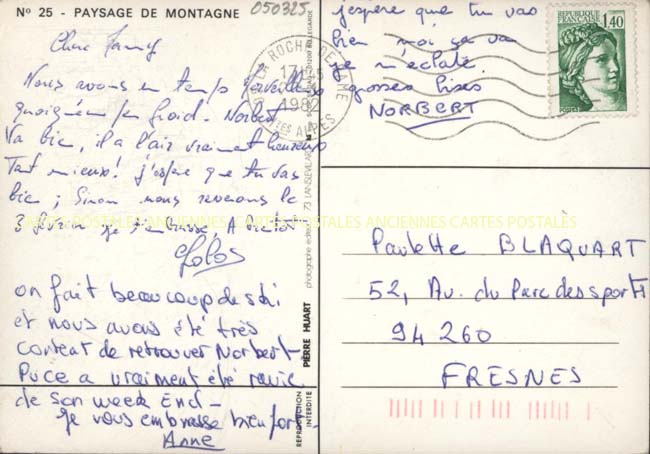 N° 25 - PAYSAGE DE MONTAGNE
050325
Nous avons un temps merveilleux
quoiqu'un peu froid. Norbert
Va bien, il a l'air vraiment heureux
Tant mieux! j'espère que tu vas
bien ; Sinon nous revenons le
3 je t'embrasse, A bientôt
Lolos
on fait beaucoup de ski
et nous avons été très
content de retrouver Norbert
Puce a vraiment été ravie
de son week End -
je vous embrasse bien fort
Anne
j'espère que tu vas
bien moi ça va
je m'éclate.
grosses bises
NORBERT
LA ROCHE DE RAME
17
1982
HTES ALPES
REPUBLIQUE
FRANCAISE
1,40
POSTES
PIERRE HUART
photographe éditeur 73 LANSLEVILLARD
REPRODUCTION
INTERDITE
CARTES POSTALES ANCIENNES CARTES POSTALES ANCIENNES CARTES POSTALES
Paulette BLAQUART
52, Av. du Parc des sports
94 260
FRESNES